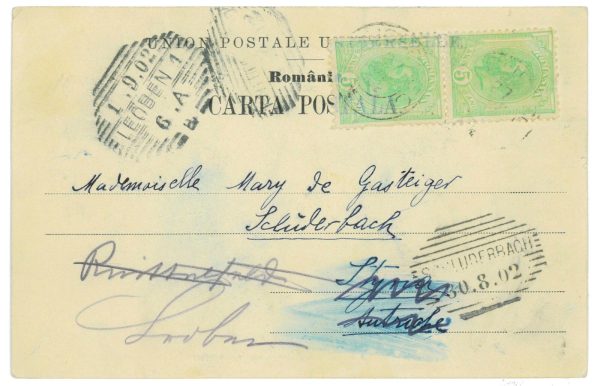 UNION POSTALE UNIVERSELLE
Români
CARTA POSTALA
5
5
1.9.02
LEOBEN 1
6.A
Mademoiselle Mary de Gasteiger
Schluderbach
SCHLUDERBACH
30.8.02
Autriche
Leoben